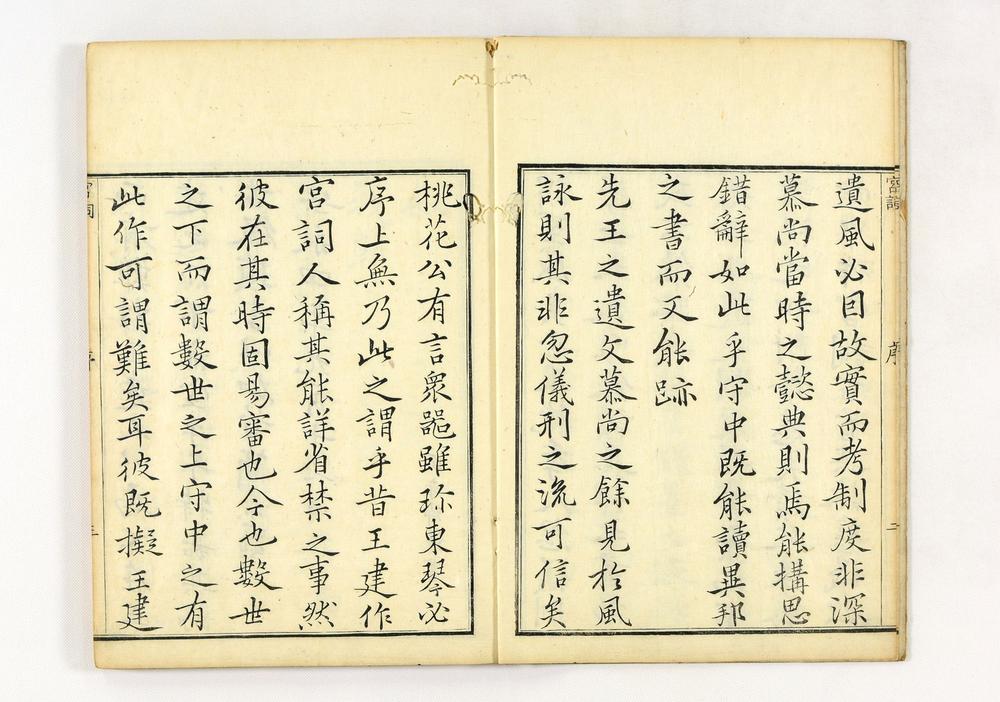 遺風必因故實而考制度非深
慕尚當時之懿典則焉能搆思
錯辭如此乎守中既能讀異邦
之書而又能跡
先王之遺文慕尚之餘見於風
詠則其非忽儀刑之流可信矣
宮詞
序
二
桃花公有言衆器雖珎東琴必
序上無乃此之謂乎昔王建作
宮詞人稱其能詳省禁之事然
彼在其時固易審也今也數世
之下而謂數世之上守中之有
此作可謂難矣耳彼既擬王建
宮詞
序
三